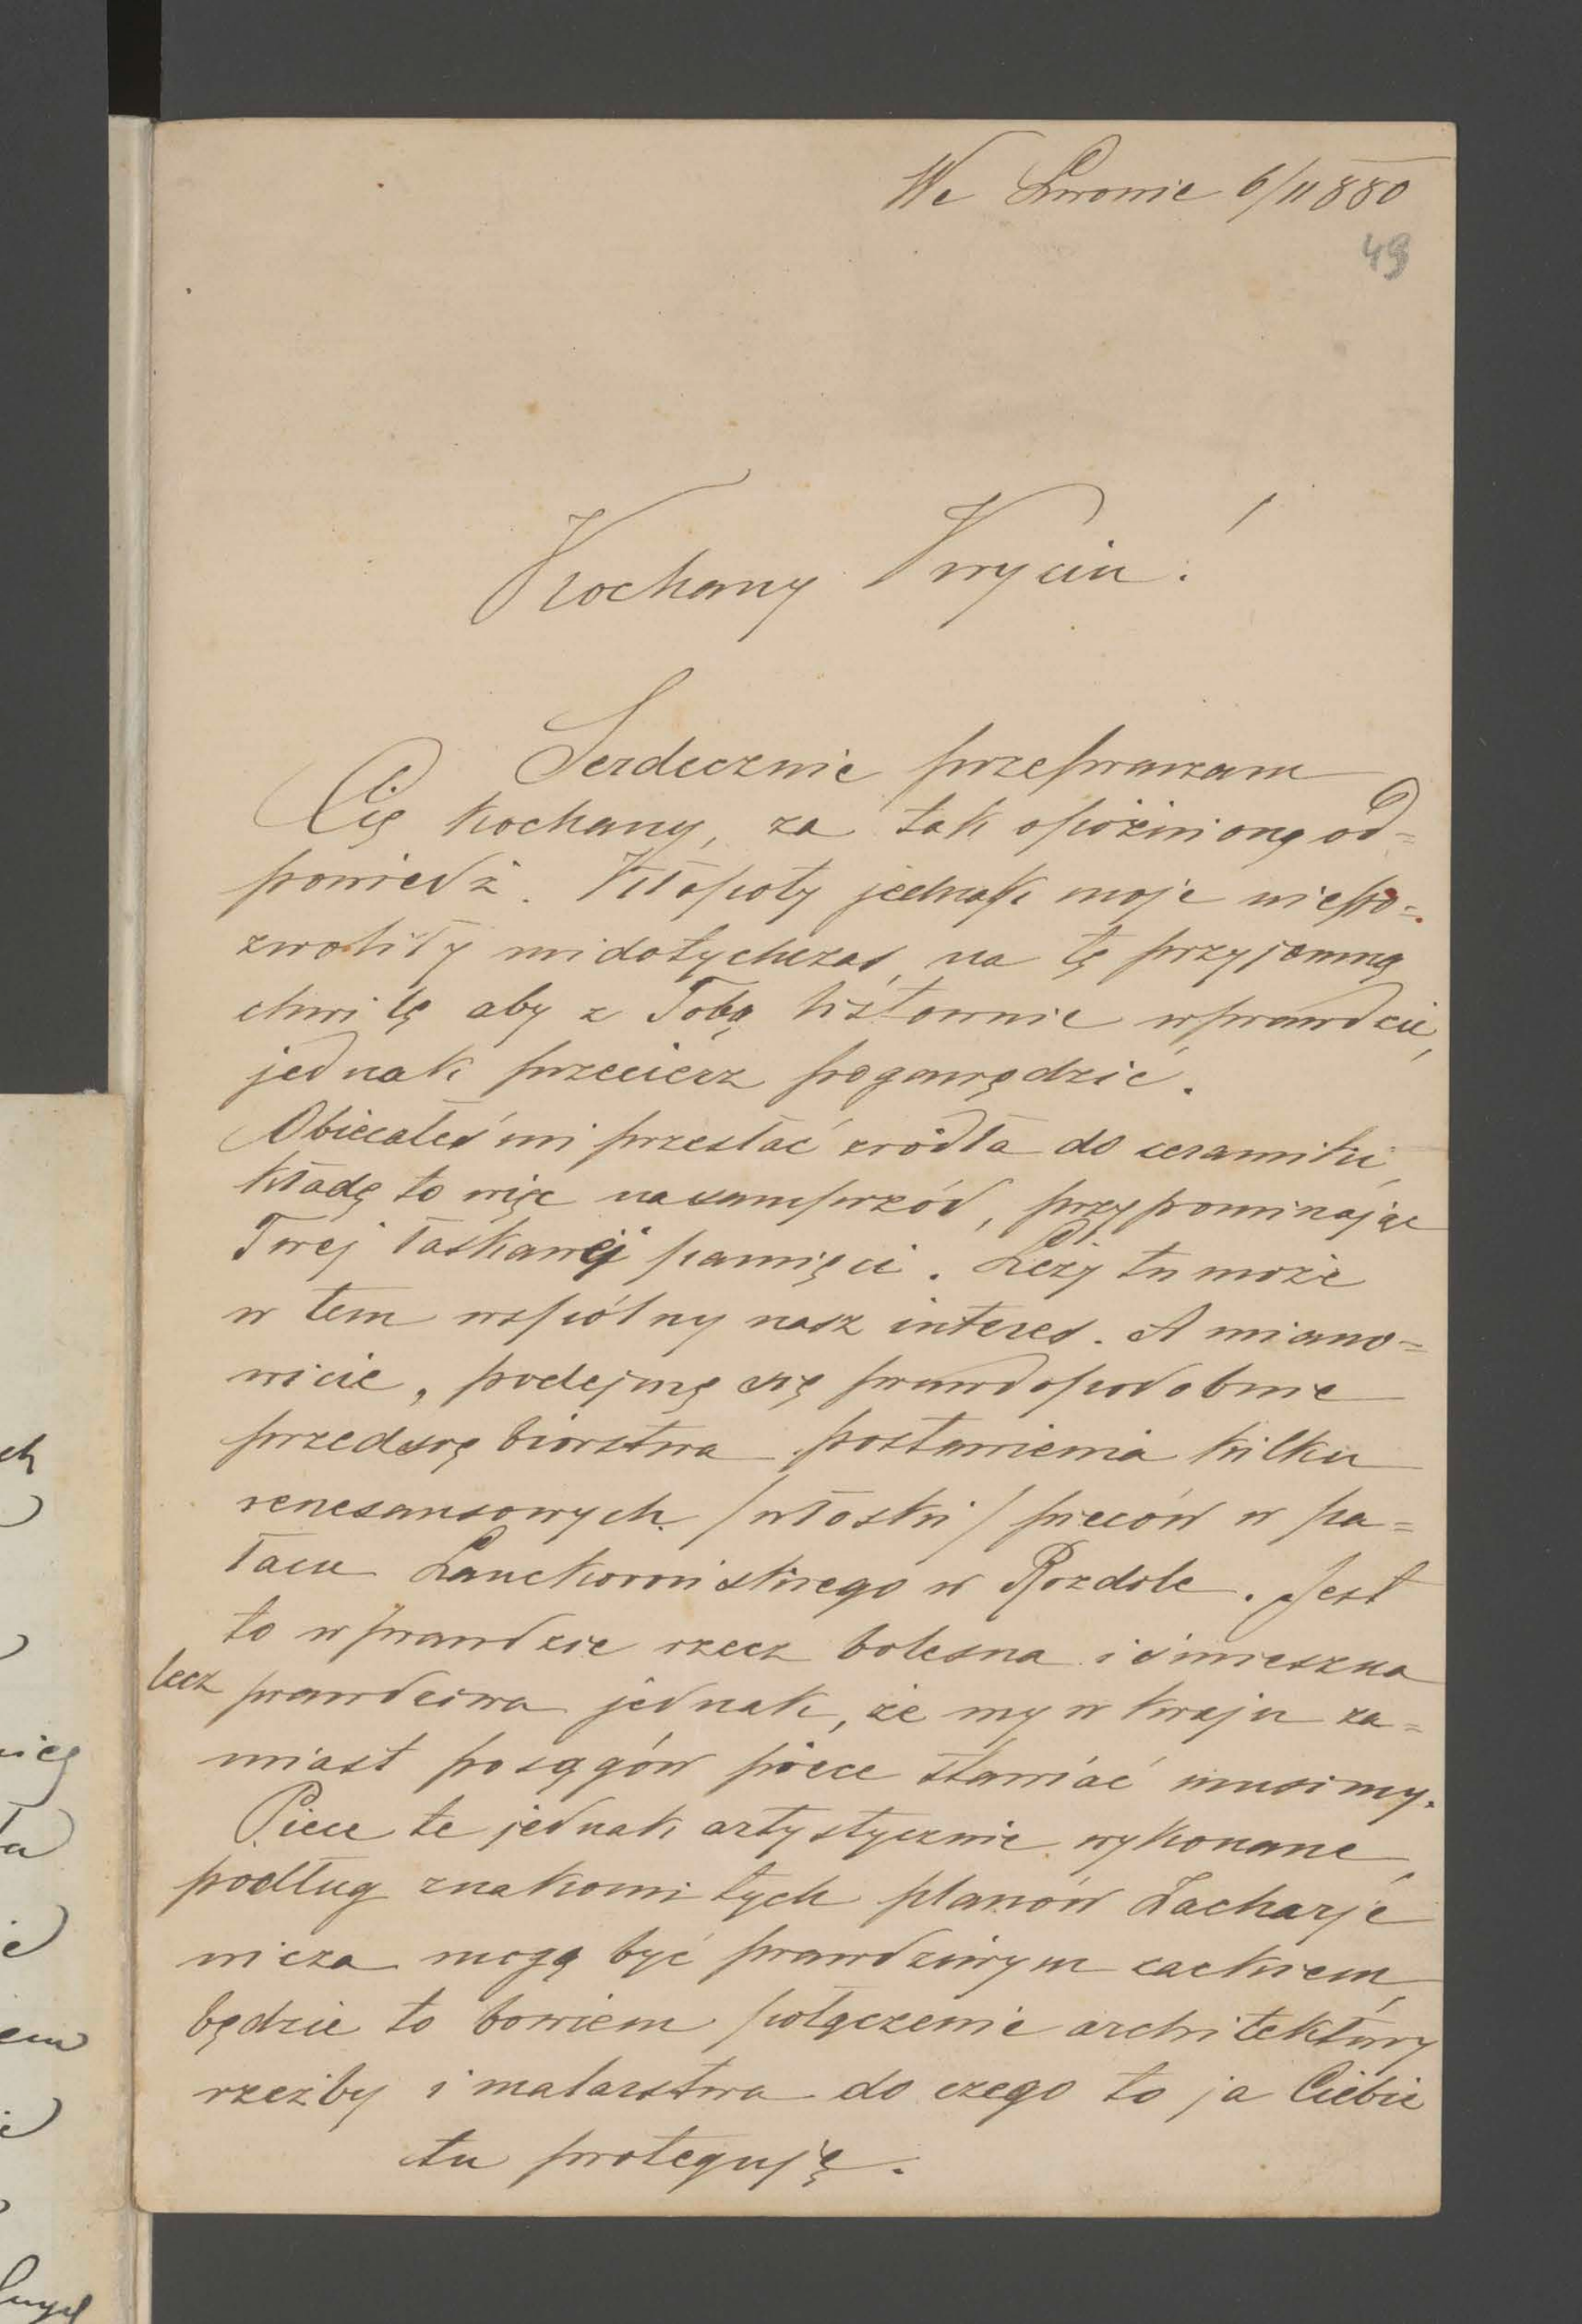 We Lwowie 6/11 880
49
Kochany Kryciu!
Serdecznie przepraszam
Cię kochany, za tak opóźnioną od=
powiedź. Kłopoty jednak moje niepo=
zwoliły mi dotychczas, na tę przyjemną
chwilę aby z Tobą listownie wprawdzie,
jednak przeciesz pogawędzić.
Obiecałeś mi przesłać źródła do ceramiki,
kładę to więc nasamprzód, przypominając
Twej łaskawej pamięci. Leży tu może
w tem wspólny nasz interes. A miano=
wicie, podejmę się prawdopodobnie
przedsię biorstwa postawienia kilku
renesansowych /włoski/ pieców w pa=
łacu Lanckorońskiego w Rozdole. Jest
to wprawdzie rzecz bolesna i śmieszna
lecz prawdziwa jednak, że my w kraju za=
miast posągów piece stawiać musimy.
Piece te jednak artystycznie wykonane,
podług znakomitych planów Zacharje
wicza mogą być prawdziwym cackiem,
będzie to bowiem połączenie architektury
rzeźby i malarstwa do czego to ja Ciebie
tu proteguję.